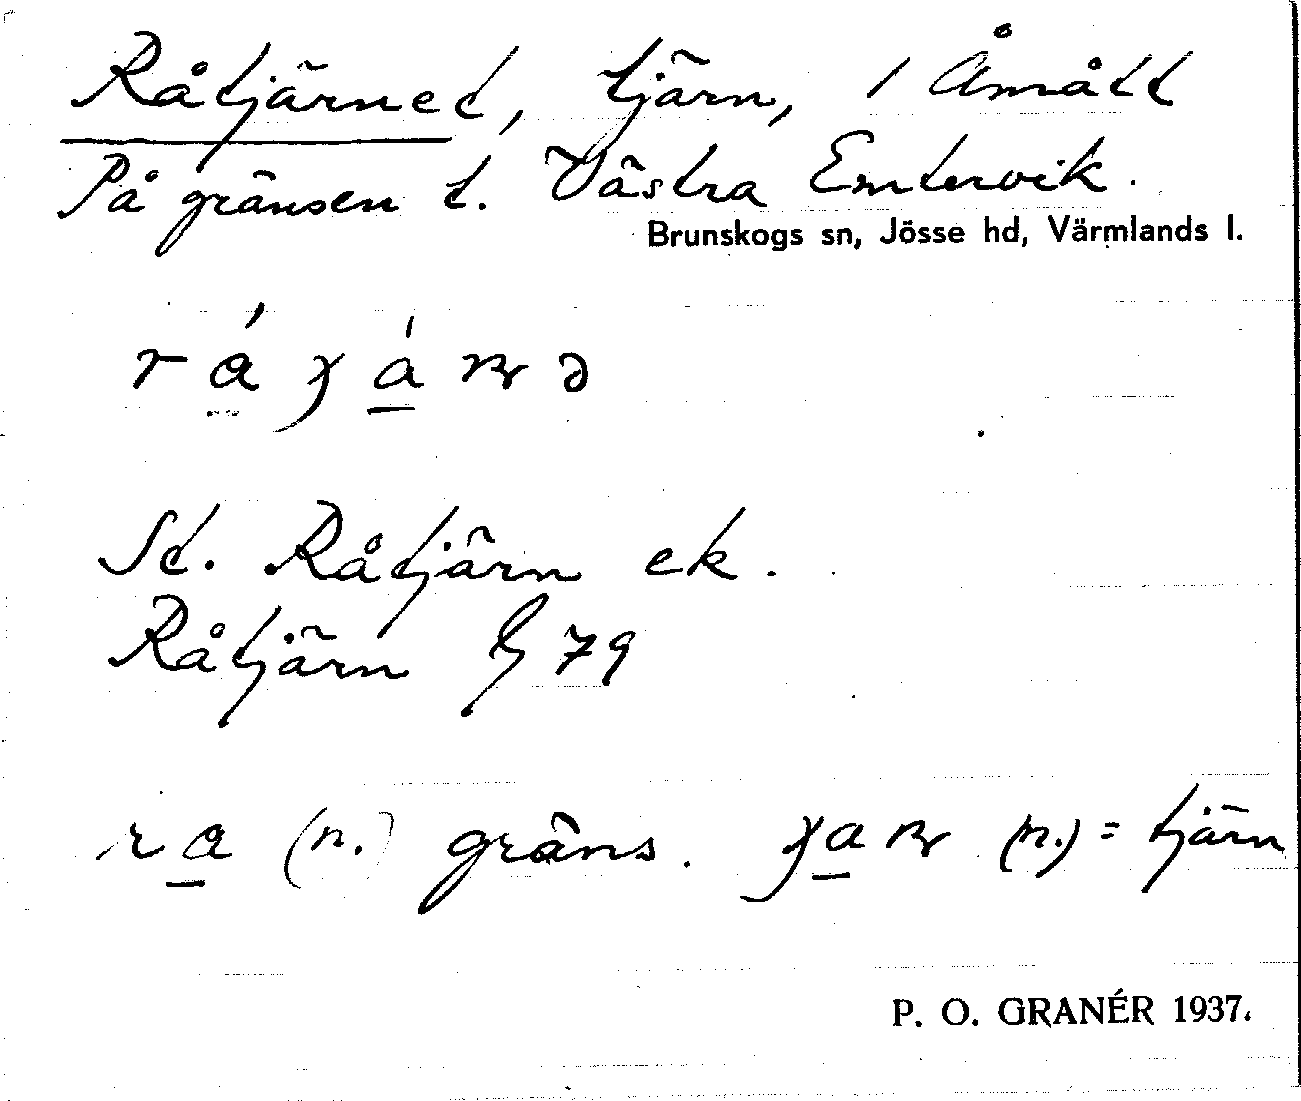 Råtjärnet, tjärn, 1 Åmått
På gränsen t. Västra Emtervik.
Brunskogs sn, Jösse hd, Värmlands l.
St. Råtjärn ek.
Råtjärn 79
(n.) gräns. (n.) = tjärn
P. O. GRANÉR 1937.